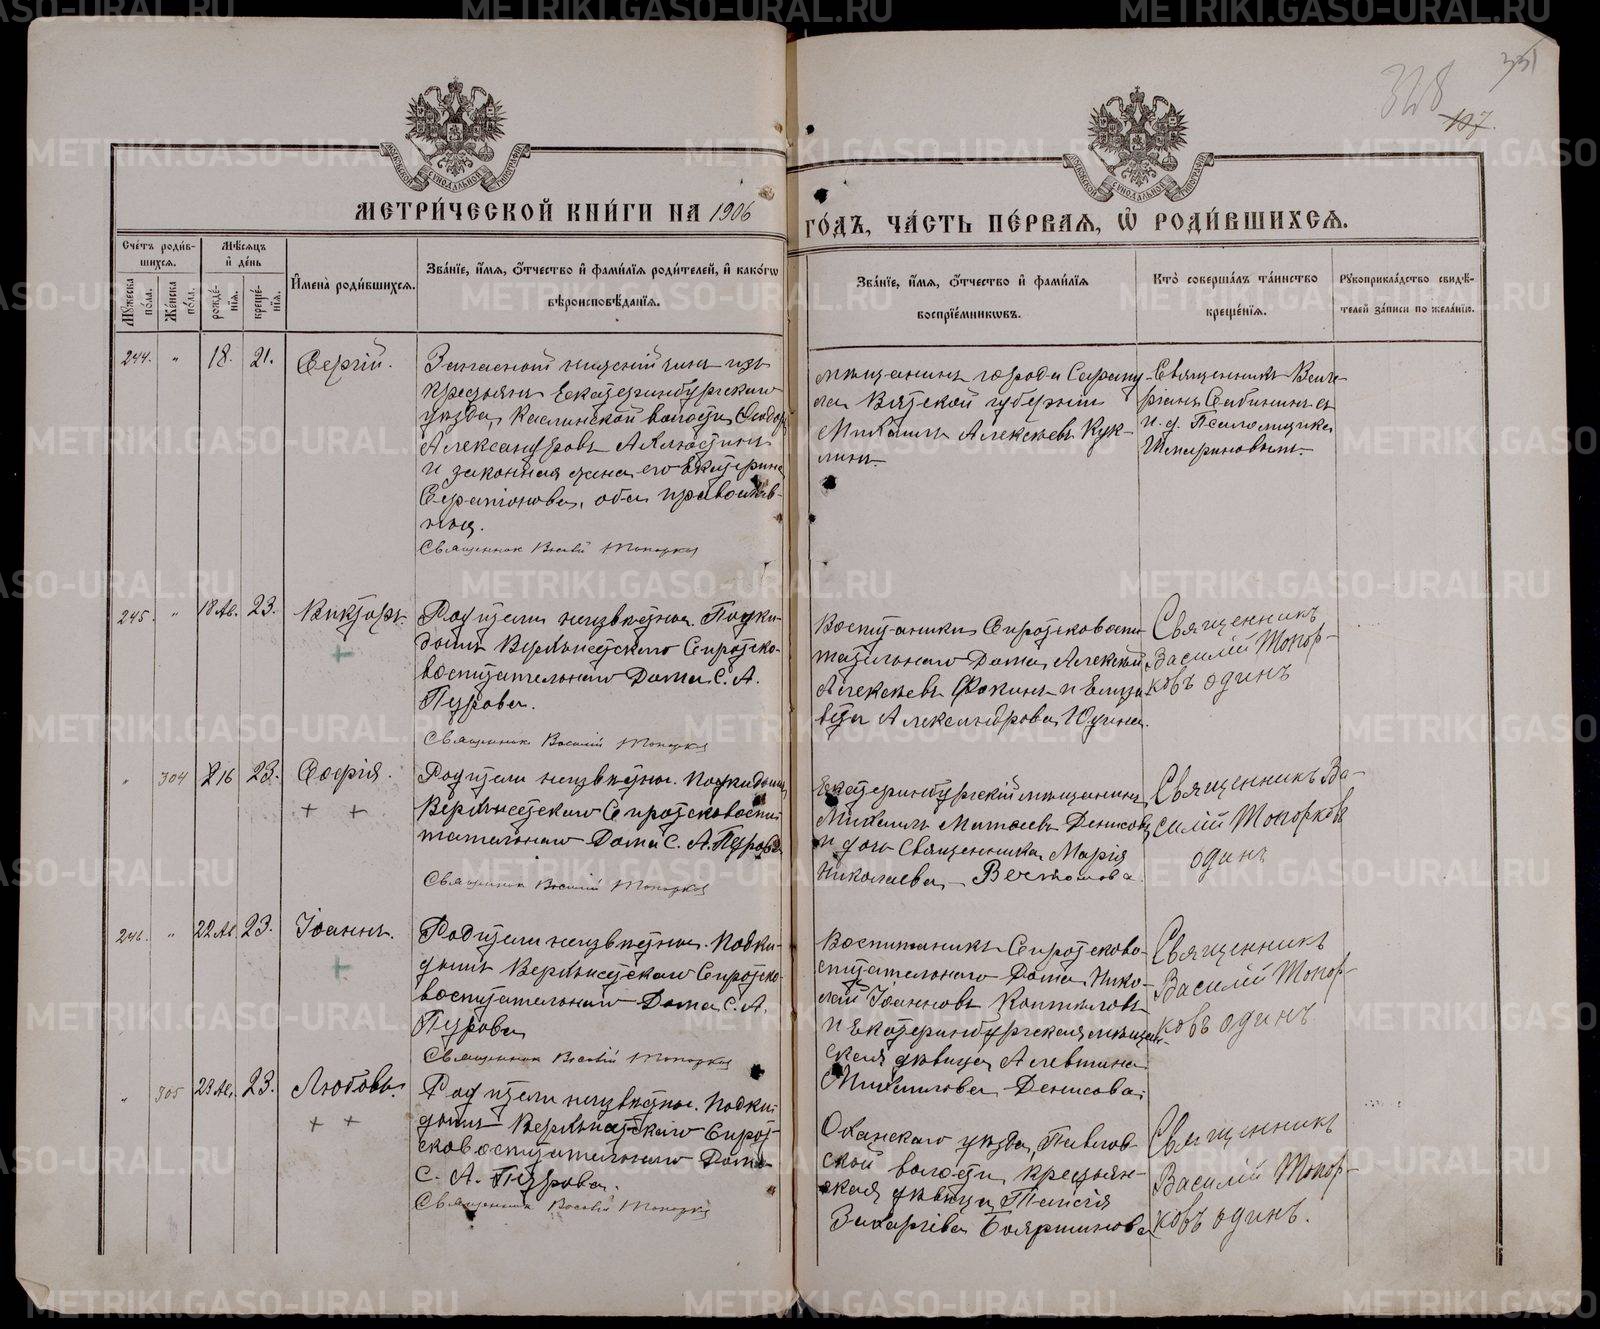 328
331
107.
МОСКОВСКОЙ СѴНОДАЛЬНОЙ ТИПОГРАФІИ
МОСКОВСКОЙ СѴНОДАЛЬНОЙ ТИПОГРАФІИ
МЕТРИ́ЧЕСКОЙ КНИ́ГИ НА 1906
ГО́ДЪ, ЧА́СТЬ ПЕ́РВАЯ, Ѡ҆ РОДИ́ВШИХСЯ.
Сче́тъ роди́в-
шихся.
Мꙋ́жеска по́ла.
Же́нска по́ла.
Мѣ́сяцъ
и҆ де́нь
рожде́-
нїя.
креще́-
нїя.
И҆мена̀ роди́вшихся.
Зва́нїе, и҆́мя, ѻ҆́тчество и҆ фами́лїя роди́телей, и҆ како́гѡ
вѣроисповѣ́данїя.
Зва́нїе, и҆́мя, ѻ҆́тчество и҆ фами́лїя
воспрїе́мникѡвъ.
Кто̀ соверша́лъ та́инство
креще́нїя.
Рꙋкоприкла́дство свидѣ́-
телей за́писи по жела́нїю.
244. " 18. 21. Сергій.
Запасной нижній чинъ изъ
крестьянъ Екатеринбургскаго
уѣзда, Каслинской волости, Ѳеодоръ
Александровъ
и законная жена его Екатерина
оба православ-
ныя.
Священник Василій Топорков
мѣщанинъ города Сарапу-
ла Вятской губерніи
Михаилъ Алексѣевъ Кук-
линъ.
Священникъ Вале-
ріанъ Сабининъ съ
и. д. Псаломщика
245. " 18 Ав. 23. Викторъ.
+
Родители неизвѣстны. Подки-
дышъ Верхъисетскаго Сиротско-
воспитательнаго Дома С. А.
Петрова.
Священник Василій Топорков
Воспитаники Сиротсковоспи-
тательнаго Дома, Алексѣй
Алексѣевъ Фокинъ и Елиза-
вета Александрова Юдина.
Священникъ
Василій Топор-
ковъ одинъ
" 304 16 23. Софія.
+ +
Родители неизвѣстны. Подкидышъ
Верхъисетскаго Сиротсковоспи-
тательнаго Дома С. А. Петрова
Священник Василій Топорков
Екатеринбургскій мѣщанинъ
Михаилъ Матвеевъ Денисовъ
и дочь Священника Марія
Николаева
Священникъ Ва-
силій Топорковъ
одинъ
246. " 22 Ав. 23. Іоаннъ.
+
Родители неизвѣстны. Подки-
дышъ Верхъисетскаго Сиротско-
воспитательнаго Дома С. А.
Петрова
Священник Василій Топорков
Воспитаникъ Сиротсково-
спитательнаго Дома, Нико-
лай Іоанновъ Коптиловъ
и Екатеринбургская мѣщан-
ская дѣвица Алевтина
Михаилова Денисова.
Священникъ
Василій Топор-
ковъ одинъ
" 305 23 Ав. 23. Любовь.
+ +
Родители неизвѣстны. Подки-
дышъ Верхъисетскаго Сирот-
сковоспитательнаго Дома
С. А. Петрова.
Священник Василій Топорков
Оханскаго уѣзда, Павлов-
ской волости крестьян-
ская дѣвица Таисія
Захаріева Бояршинова
Священникъ
Василій Топор-
ковъ одинъ.
METRIKI.GASO-URAL.RU